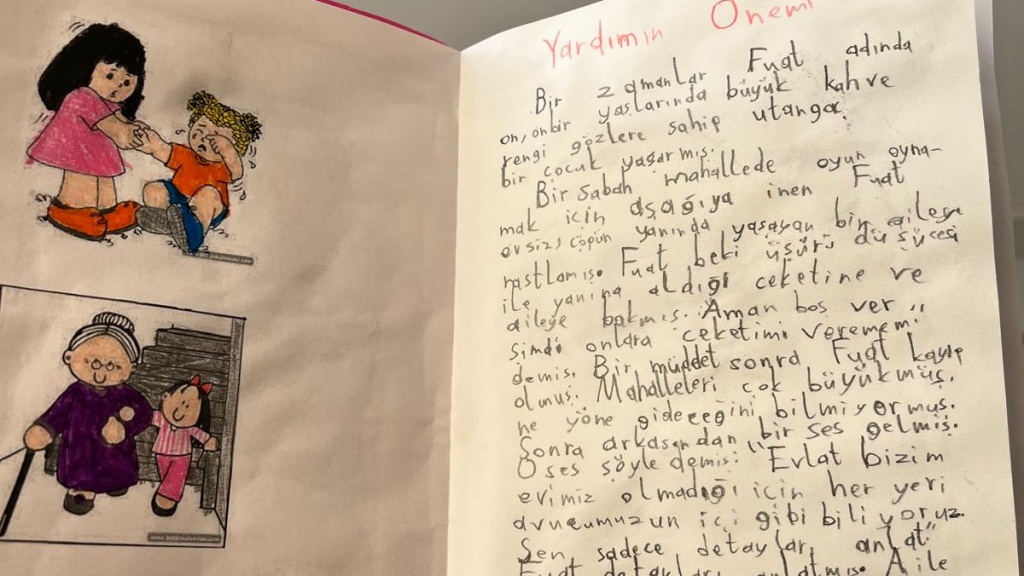 Yardımın Önemi
Bir zamanlar Fuat adında
on, onbir yaşlarında büyük kahve
rengi gözlere sahip utangaç
bir çocuk yaşarmış.
Bir sabah mahallede oyun oyna-
mak için aşağıya inen Fuat
evsiz, çöpün yanında yaşayan bir aileye
rastlamış. Fuat belki üşürü düşücesi
ile yanına aldığı ceketine ve
aileye bakmış. Aman boş ver "
şimdi onlara ceketimi veremem.
demiş. Bir müddet sonra Fuat kayıp
olmuş. Mahalleleri çok büyükmüş.
ne yöne gideceğini bilmiyormuş.
Sonra arkasından bir ses gelmiş.
O ses şöyle demiş: "Evlat bizim
evimiz olmadığı için her yeri
avucumuzun içi gibi biliyoruz.
Sen sadece detayları anlat"
Fuat detayları anlatmış. Aile